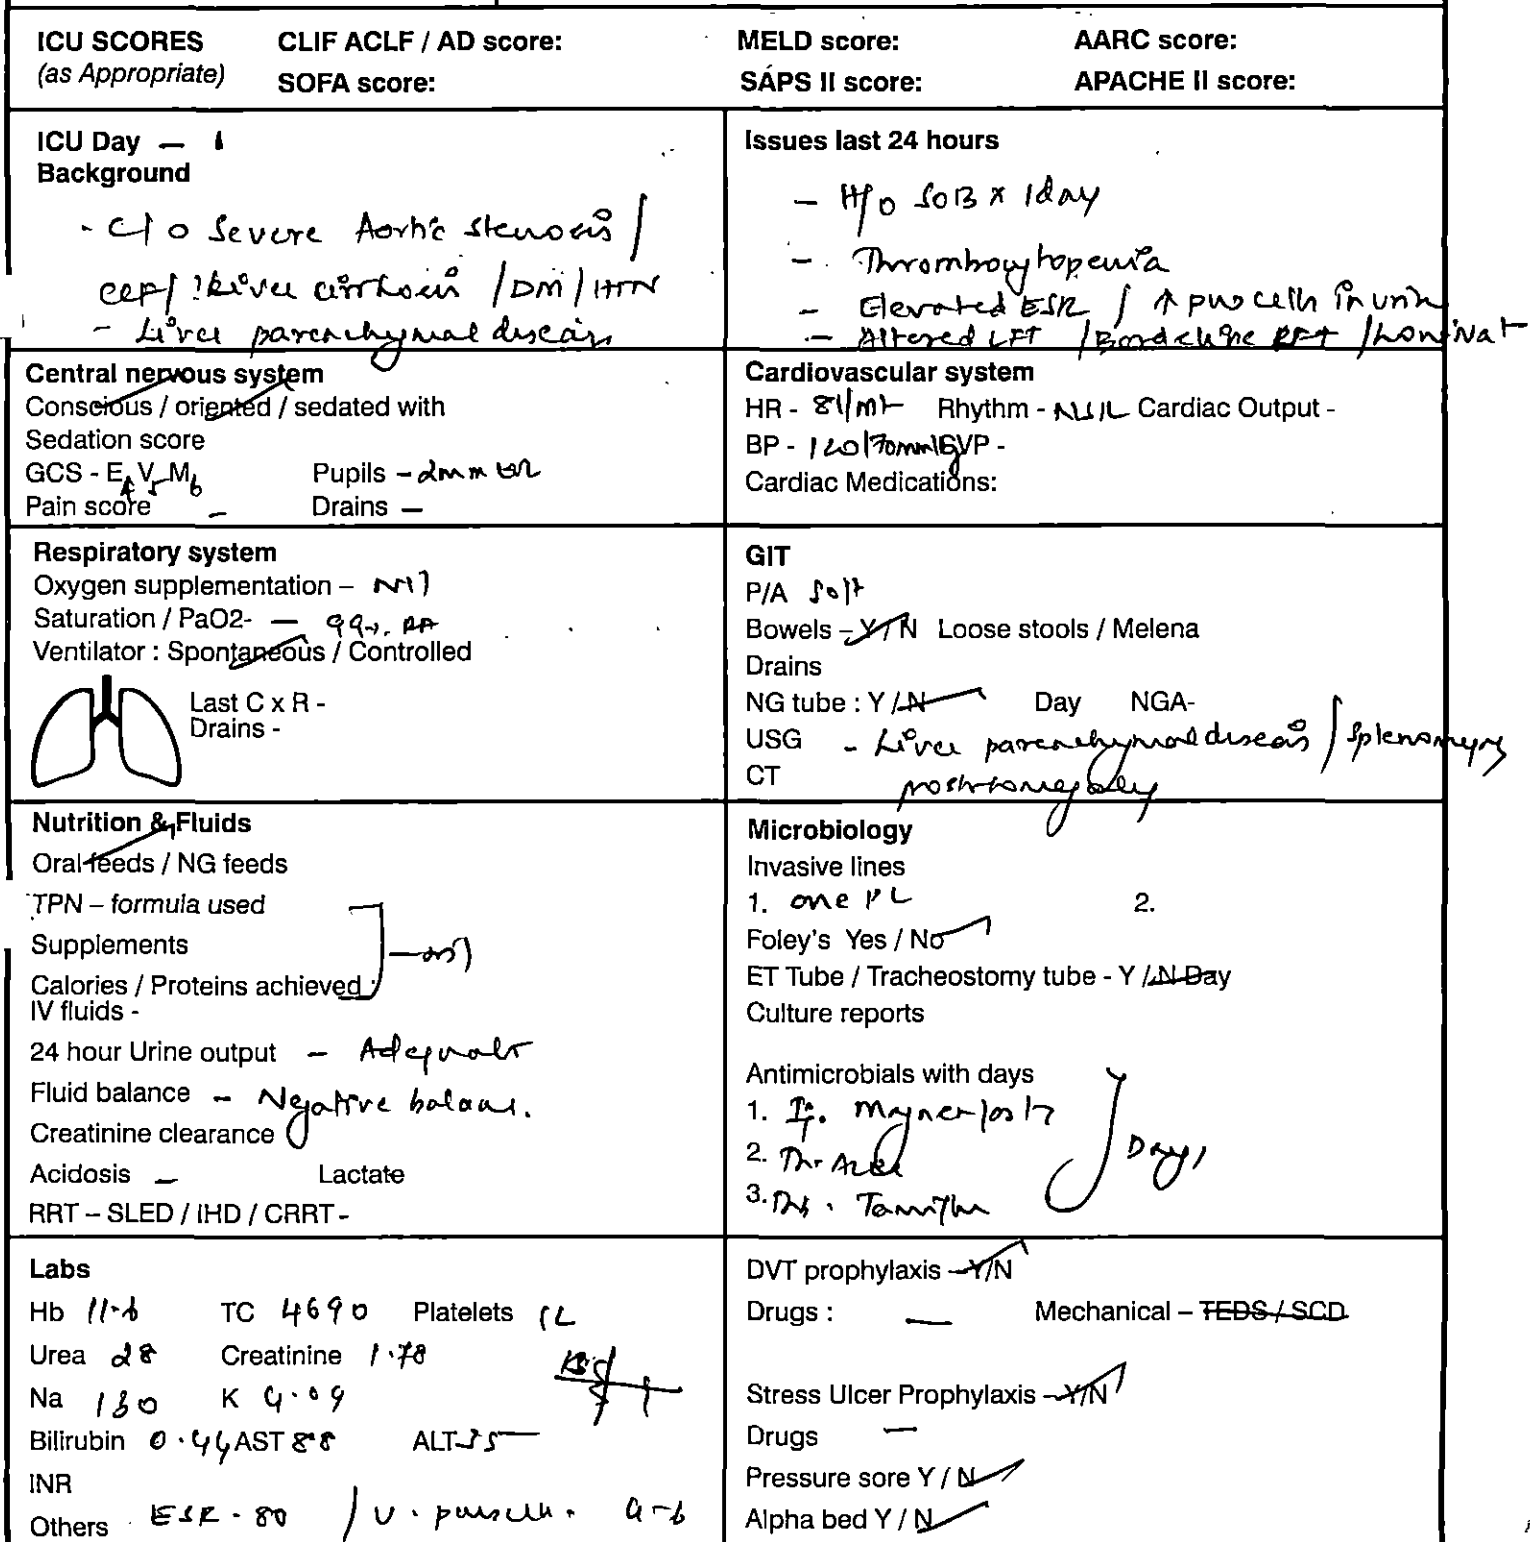 ICU SCORES CLIF ACLF / AD score: MELD score: AARC score:
(as Appropriate) SOFA score: SAPS II score: APACHE II score:
ICU Day – 1
Background
- C/o Severe Aortic stenosis /
/ DM / HTN
- Liver parenchymal disease
Issues last 24 hours
- H/o SOB x 1day
- Thrombocytopenia
- Elevated ESR / ↑ pus cells in urine
- Altered LFT / Borderline RFT / Low Na+
Central nervous system
Conscious / oriented / sedated with
Sedation score
GCS - E4 V5 M6 Pupils – 2mm
Pain score – Drains –
Cardiovascular system
HR - 81/mt Rhythm - Cardiac Output -
BP - 120/70mmHg CVP -
Cardiac Medications:
Respiratory system
Oxygen supplementation – Nil
Saturation / PaO2- – 99%. RA
Ventilator : Spontaneous / Controlled
Last C x R -
Drains -
GIT
P/A Soft
Bowels – Y / N Loose stools / Melena
Drains
NG tube : Y / N Day NGA-
USG - Liver parenchymal disease /
CT
Nutrition & Fluids
Oral feeds / NG feeds
TPN – formula used
Supplements – nil
Calories / Proteins achieved :
IV fluids -
24 hour Urine output – Adequate
Fluid balance – Negative balance.
Creatinine clearance
Acidosis – Lactate
RRT – SLED / IHD / CRRT -
Microbiology
Invasive lines
1. one PL 2.
Foley's Yes / No
ET Tube / Tracheostomy tube - Y / N Day
Culture reports
Antimicrobials with days
1.
2.
3.
Day 1
Labs
Hb 11.6 TC 4690 Platelets 1L
Urea 28 Creatinine 1.78
Na 130 K 4.09
Bilirubin 0.44 AST 88 ALT 35
INR
Others ESR - 80 / U. pus cells. 4-6
DVT prophylaxis – Y/N
Drugs : – Mechanical – TEDS / SCD
Stress Ulcer Prophylaxis – Y/N
Drugs –
Pressure sore Y / N
Alpha bed Y / N